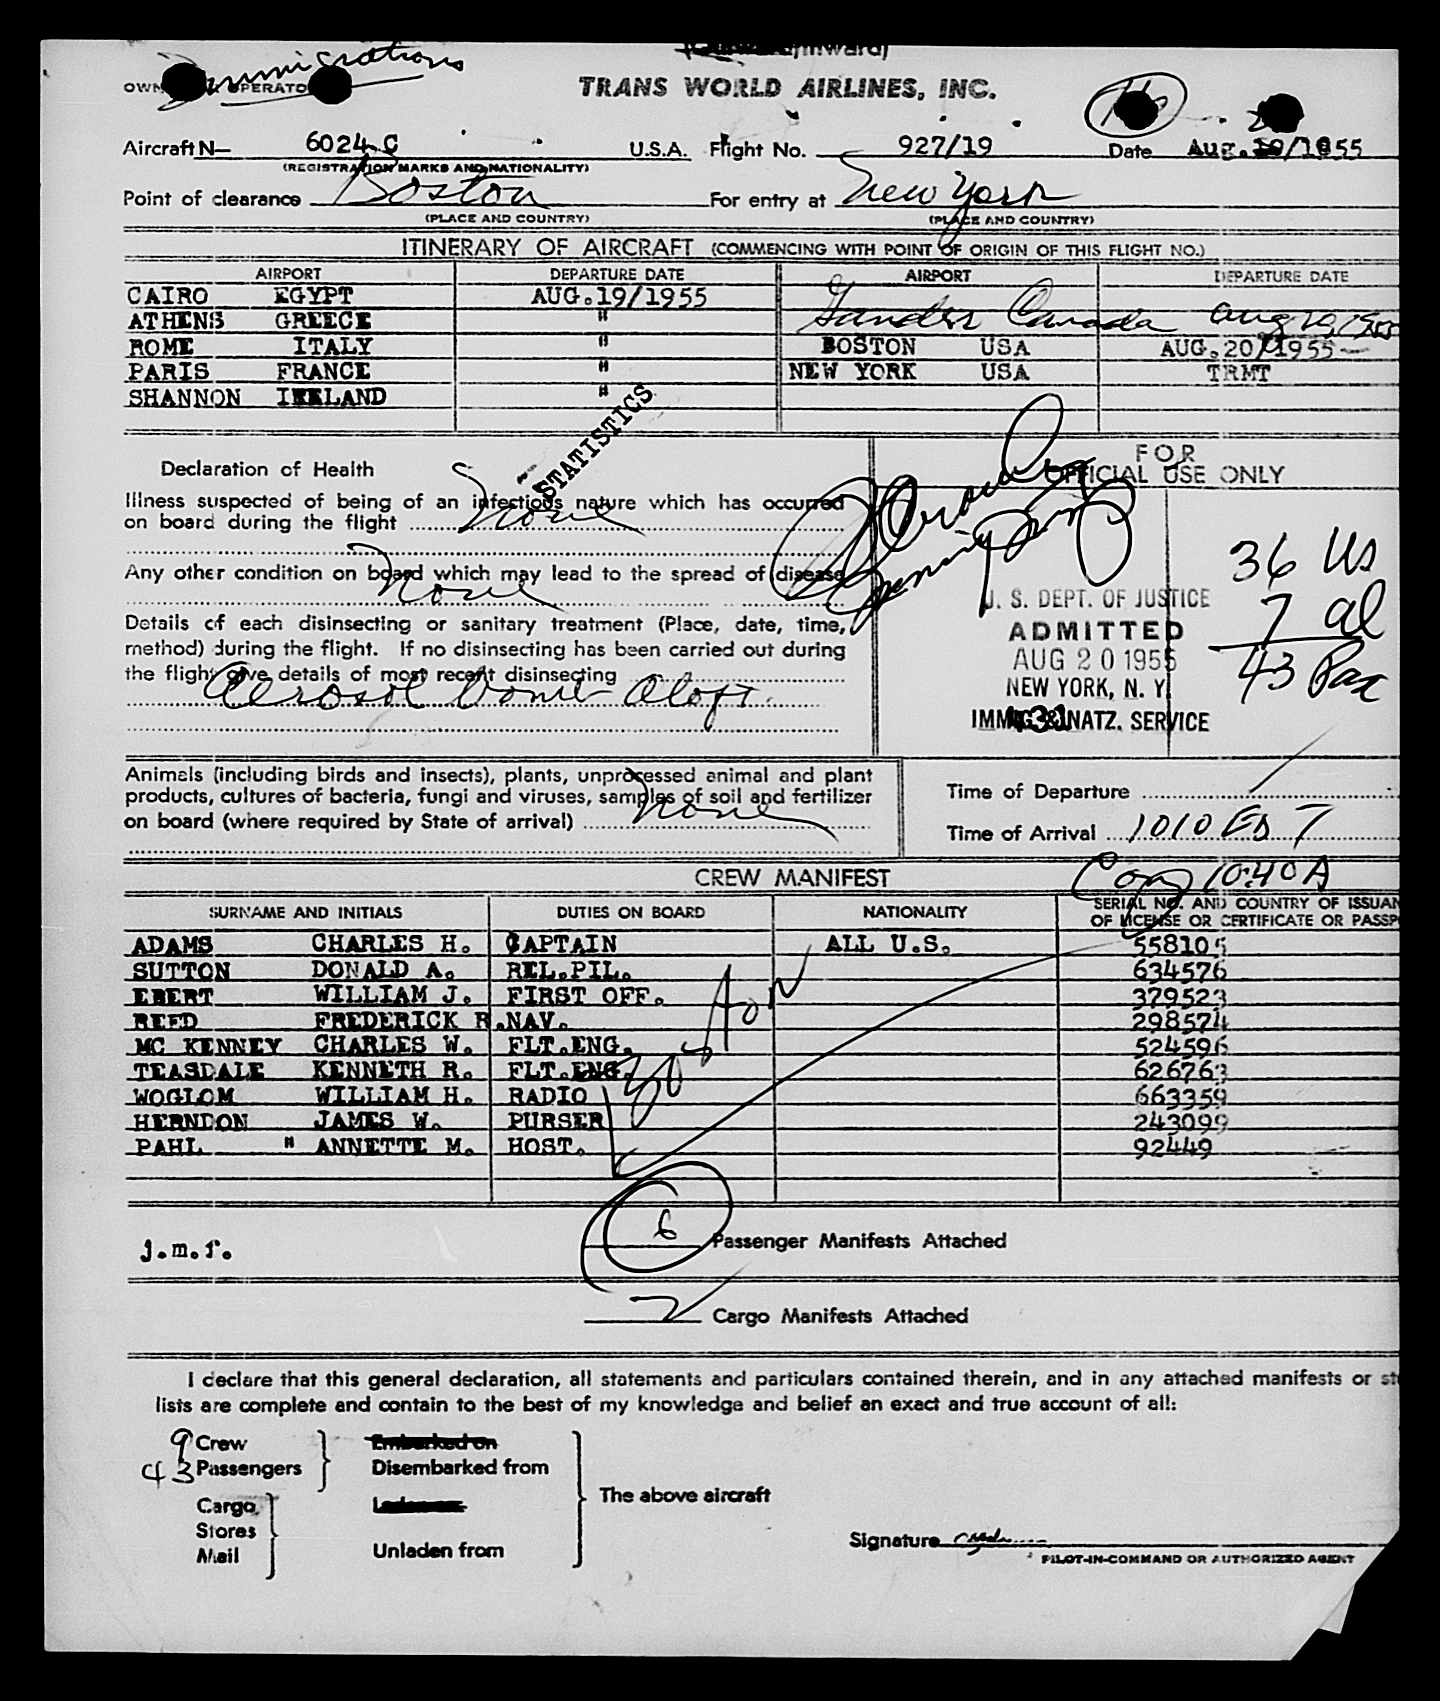 Immigrations
(Outward/Inward)
OWNER OR OPERATOR TRANS WORLD AIRLINES, INC.
Aircraft N— 6024 C U.S.A. Flight No. 927/19 Date Aug. /1955
(REGISTRATION MARKS AND NATIONALITY)
Point of clearance Boston For entry at New York
(PLACE AND COUNTRY) (PLACE AND COUNTRY)
ITINERARY OF AIRCRAFT (COMMENCING WITH POINT OF ORIGIN OF THIS FLIGHT NO.)
AIRPORT DEPARTURE DATE AIRPORT DEPARTURE DATE
CAIRO EGYPT AUG.19/1955
ATHENS GREECE " Gander Canada Aug 20, 1955
ROME ITALY " BOSTON USA AUG.20/1955
PARIS FRANCE " NEW YORK USA TRMT
SHANNON IRELAND "
STATISTICS
Declaration of Health
FOR
OFFICIAL USE ONLY
Illness suspected of being of an infectious nature which has occurred
on board during the flight None
Any other condition on board which may lead to the spread of disease
None
Details of each disinsecting or sanitary treatment (Place, date, time,
method) during the flight. If no disinsecting has been carried out during
the flight give details of most recent disinsecting
Aerosol Bomb Aloft.
36 US
7 al
43 Pax
U. S. DEPT. OF JUSTICE
ADMITTED
AUG 20 1955
NEW YORK, N. Y.
IMMIG. & NATZ. SERVICE
431
Animals (including birds and insects), plants, unprocessed animal and plant
products, cultures of bacteria, fungi and viruses, samples of soil and fertilizer
on board (where required by State of arrival) None
Time of Departure
Time of Arrival 1010 EDT
10:40 A
CREW MANIFEST
SURNAME AND INITIALS DUTIES ON BOARD NATIONALITY SERIAL NO. AND COUNTRY OF ISSUAN
OF LICENSE OR CERTIFICATE OR PASSP
ADAMS CHARLES H. CAPTAIN ALL U.S. 558105
SUTTON DONALD A. REL.PIL. 634576
EBERT WILLIAM J. FIRST OFF. 379523
REED FREDERICK R.NAV. 298574
MC KENNEY CHARLES W. FLT.ENG. 524596
TEASDALE KENNETH R. FLT.ENG. 626763
WOGLOM WILLIAM H. RADIO 663359
HERNDON JAMES W. PURSER 243099
PAHL " ANNETTE M. HOST. 92449
Boston
j.m.r.
6 Passenger Manifests Attached
2 Cargo Manifests Attached
I declare that this general declaration, all statements and particulars contained therein, and in any attached manifests or st
lists are complete and contain to the best of my knowledge and belief an exact and true account of all:
9 Crew Embarked on
43 Passengers Disembarked from
The above aircraft
Cargo
Stores
Mail Unladen from
Signature
PILOT-IN-COMMAND OR AUTHORIZED AGENT